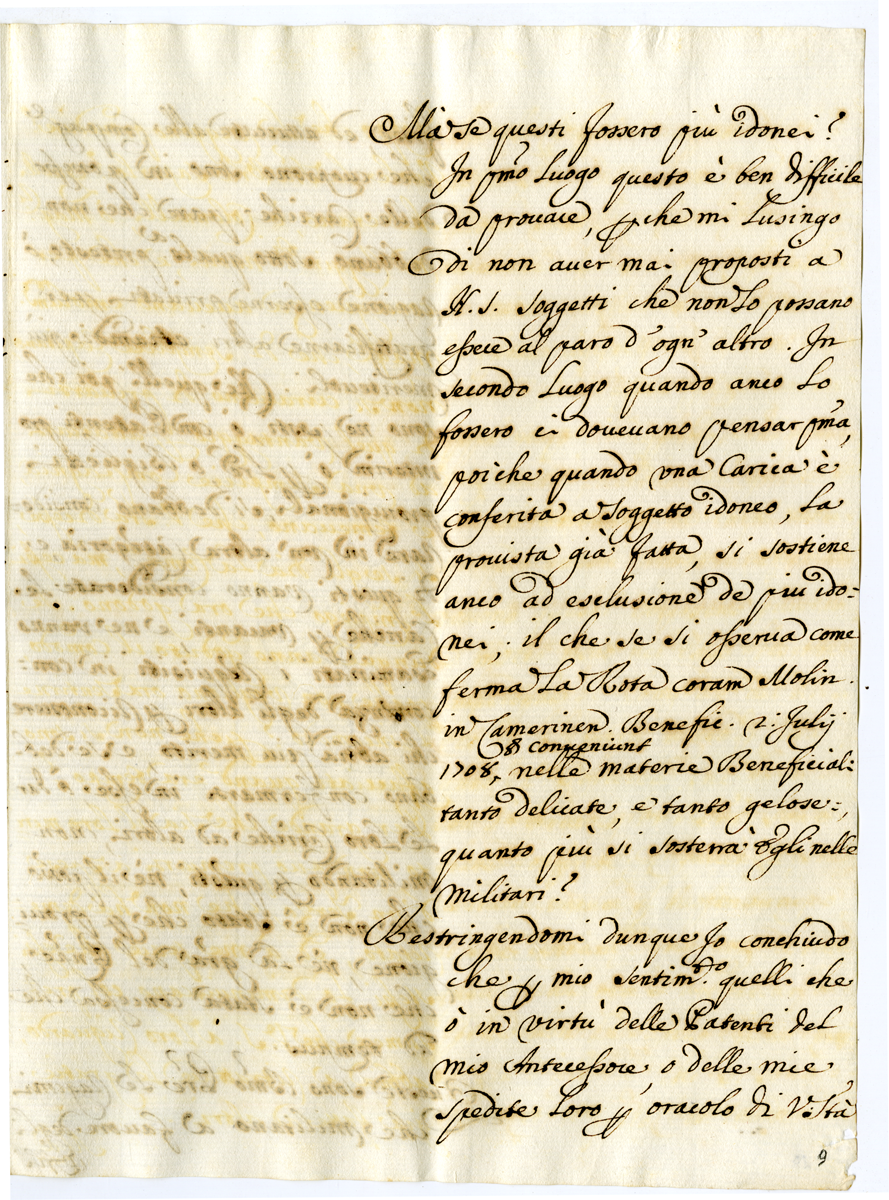 Mà se questi fossero più idonei?
In pm̃o Luogo questo è ben difficile
da provare, p che mi Lusingo
di non aver mai proposti a
N. S. soggetti che non Lo possano
essere al paro d'ogn' altro. In
secondo Luogo quando anco Lo
fossero ci dovevano pensar pm̃a,
poiche quando una Carica è
conferita a soggetto idoneo, La
provista già fatta, si sostiene
anco ad esclusione de più ido=
nei; il che se si osserva come
ferma La Rota coram Molin.
in Camerinen. Benefic. 2. Julij
1708,
& conveniunt
nelle materie Beneficial:
tanto delicate, e tanto gelose,
quanto più si sosterrà nelle
Militari?
Restringendomi dunque Jo conchiudo
che p mio sentim.to quelli che
ò in virtù delle Patenti del
mio Antecessore, o delle mie
spedite Loro p oracolo di V. Stà
9